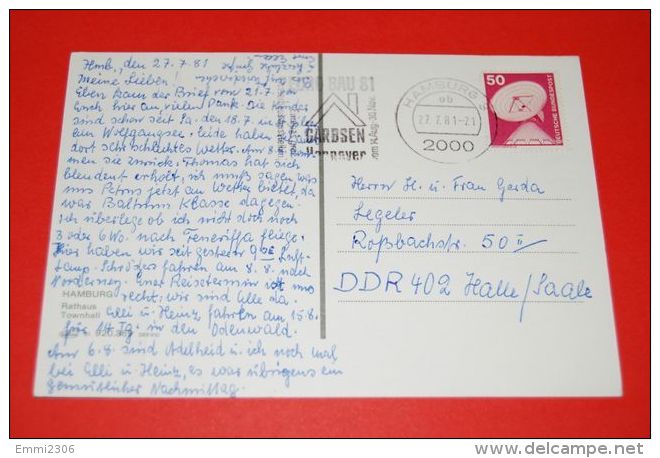 Hmb, den 27.7.81
Meine Lieben!
Eben kam der Brief vom 21.7. von
Euch hier an, vielen Dank. Die Kinder
sind schon seit Sa. den 18.7. in
am Wolfgangsee. Leider haben
dort schlechtes Wetter. Am 8.
men sie zurück. Thomas hat sich
blendend erholt, ich muß sagen was
uns Petrus jetzt an Wetter bietet, da
war Baltrum Klasse dagegen.
ich überlege ob ich nicht doch noch
3 oder 6 Wo. nach Teneriffa fliege.
Hier haben wir seit gestern 9 Luft-
temp. Schröders fahren am 8.8. nach
Norderney. Euer Reisetermin ist mir
recht, wir sind alle da.
Elli u. Heinz fahren am 15.8.
für 14 Tg. in den Odenwald.
Am 6.8. sind Adelheid u. ich noch mal
bei Elli u. Heinz, es war übrigens ein
gemütlicher Nachmittag.
HAMBURG
Rathaus
Townhall
BAU 81
GARBSEN
Hannover
HAMBURG
ob
27.7.81-21
2000
50
DEUTSCHE BUNDESPOST
Herrn H. u. Frau Gerda
Legeler
Roßbachstr. 50 II
DDR 402 Halle/Saale
Emmi2306
delcampe.net